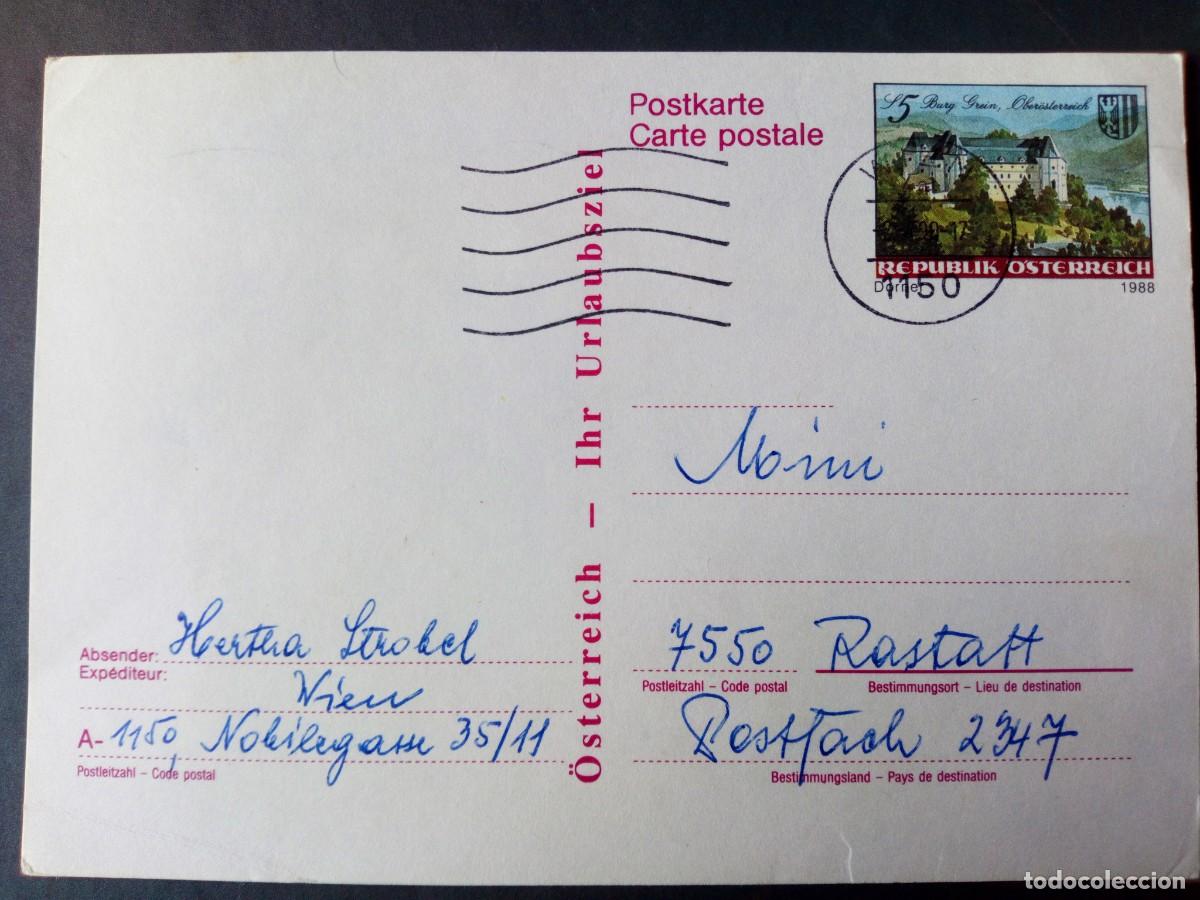 Postkarte
Carte postale
S5 Burg Grein, Oberösterreich
REPUBLIK ÖSTERREICH
1988
1150
Österreich – Ihr Urlaubsziel
Mimi
7550 Rastatt
Postleitzahl – Code postal
Bestimmungsort – Lieu de destination
Postfach 2347
Bestimmungsland – Pays de destination
Absender: Hertha Strobel
Expéditeur:
Wien
A- 1150, Nobilegasse 35/11
Postleitzahl – Code postal
todocoleccion